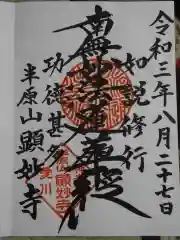 令和三年八月二十七日
如説修行
南無妙法蓮華経
功徳甚多
半原山顕妙寺